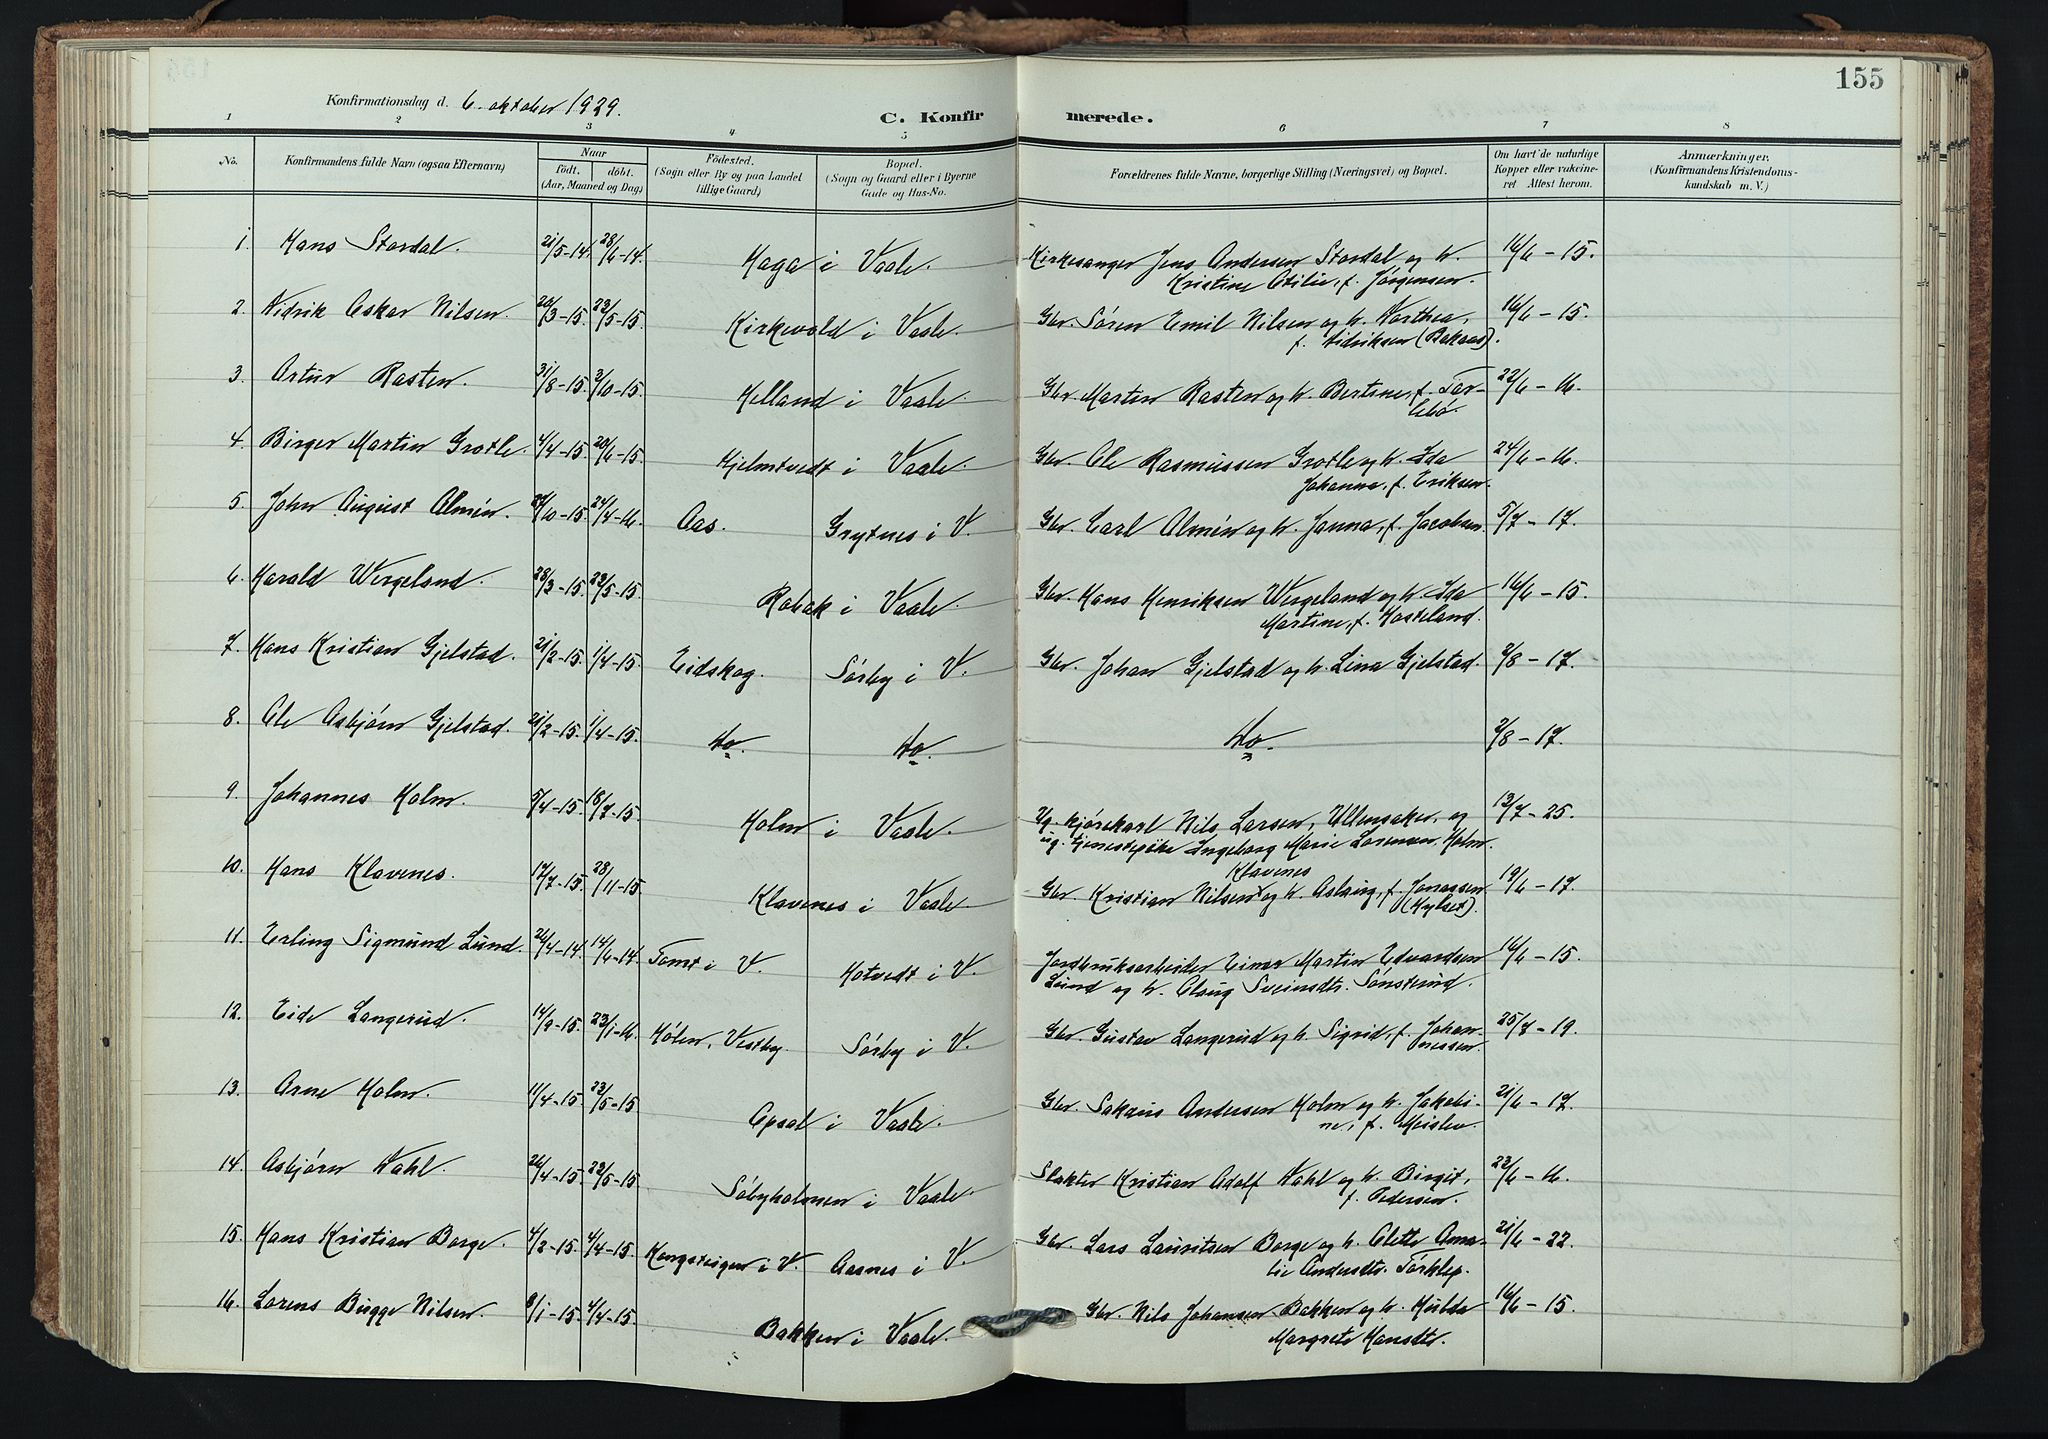 155
Konfirmationsdag d. 6. oktober 1929.
C. Konfirmerede.
1 2 3 4 5 6 7 8
No. Konfirmandens fulde Navn (ogsaa Efternavn) Naar født. døbt. (Aar, Maaned og Dag) Fødested. (Sogn eller By og paa Landet tillige Gaard) Bopæl. (Sogn og Gaard eller i Byerne Gade og Hus-No. Forældrenes fulde Navne, borgerlige Stilling (Næringsvei) og Bopæl. Om havt de naturlige Kopper eller vakcineret Attest herom. Anmærkninger. (Konfirmandens Kristendomskundskab m. V.)
1. Hans Stordal. 21/5-14. 28/6-14. Haga i Vaale. Kirkesanger Jens Andersen Stordal og h. 16/6-15.
Kristine Otilie, f. Jørgensen.
2. Didrik Oskar Nilsen. 20/3-15. 23/5-15. Kirkevold i Vaale. Gbr. Søren Emil Nilsen og h. Dorthea, 16/6-15.
f. Didriksen (Bakaas).
3. Artur Rasten. 31/8-15. 3/10-15. Helland i Vaale. Gbr. Martin Rasten og h. Bertine, f. Tor- 22/6-16.
4. Birger Martin Grotle. 4/4-15. 20/6-15. Hjelmtvedt i Vaale. Gbr. Ole Rasmussen Grotle og h. Ida 24/6-16.
Johanne, f. Eriksen.
5. John August Almén. /10-15. 24/4-16. Aas. Grytnes i V. Gbr. Carl Almén og h. Janna, f. Jacobsen. 5/7-17.
6. Harald Wergeland. 28/3-15. 23/5-15. Robak i Vaale. Gbr. Hans Henriksen Wergeland og h. Ida 16/6-15.
Martine, f. Hasteland.
7. Hans Kristian Gjelstad. 21/2-15. 1/4-15. Eidskog. Sørby i V. Gbr. Johan Gjelstad og h. Lina Gjelstad. 2/8-17.
8. Ole Asbjørn Gjelstad. 21/2-15. 1/4-15. Do. Do. Do. 2/8-17.
9. Johannes Holm. 5/4-15. 18/7-15. Holm i Vaale. Ug. kjørekarl Nils Larsen, Ullensaker, og 13/7-25.
ug. tjenestepike Ingeborg Marie Holm.
10. Hans Klavenes. 17/7-15. 28/11-15. Klavenes i Vaale. Klavenes
Gbr. Kristian Nilsen og h. Aslaug, f. Jonassen 19/6-17.
11. Erling Sigmund Lund. 26/4-14. 14/6-14. Tomt i V. Hotvedt i V. Jordbruksarbeider Einar Martin Edvardsen 16/6-15.
Lund og h. Olaug Sveinsdtr. Sønsterud.
12. Eide Langerud. 14/9-15. 23/1-16. Hølen, Vestby. Sørby i V. Gbr. Gustav Langerud og h. Sigrid, f. Johan- 25/7-19.
nessen.
13. Arne Holm. 11/4-15. 23/5-15 Opsal i Vaale. Gbr. Sakaus Andersen Holm og h. Jakobi- 21/6-17.
ne, f.
14. Asbjørn Dahl. 26/4-15. 23/5-15. Søbyholmen i Vaale. Slakter Kristian Adolf Dahl og h. Birgit, 22/6-16.
f. Pedersen.
15. Hans Kristian Borge. 4/2-15. 4/4-15. Kongsteigen i V. Aasnes i V. Gbr. Lars Lauritsen Borge og h. Olette Ama- 21/6-22.
lie Andersdtr. Torklep.
16. Lorens Bugge Nilsen. 8/1-15. 4/4-15. Bakken i Vaale. Gbr. Nils Johansen Bakken og h. Hulda 16/6-15.
Margrete Hansdtr.